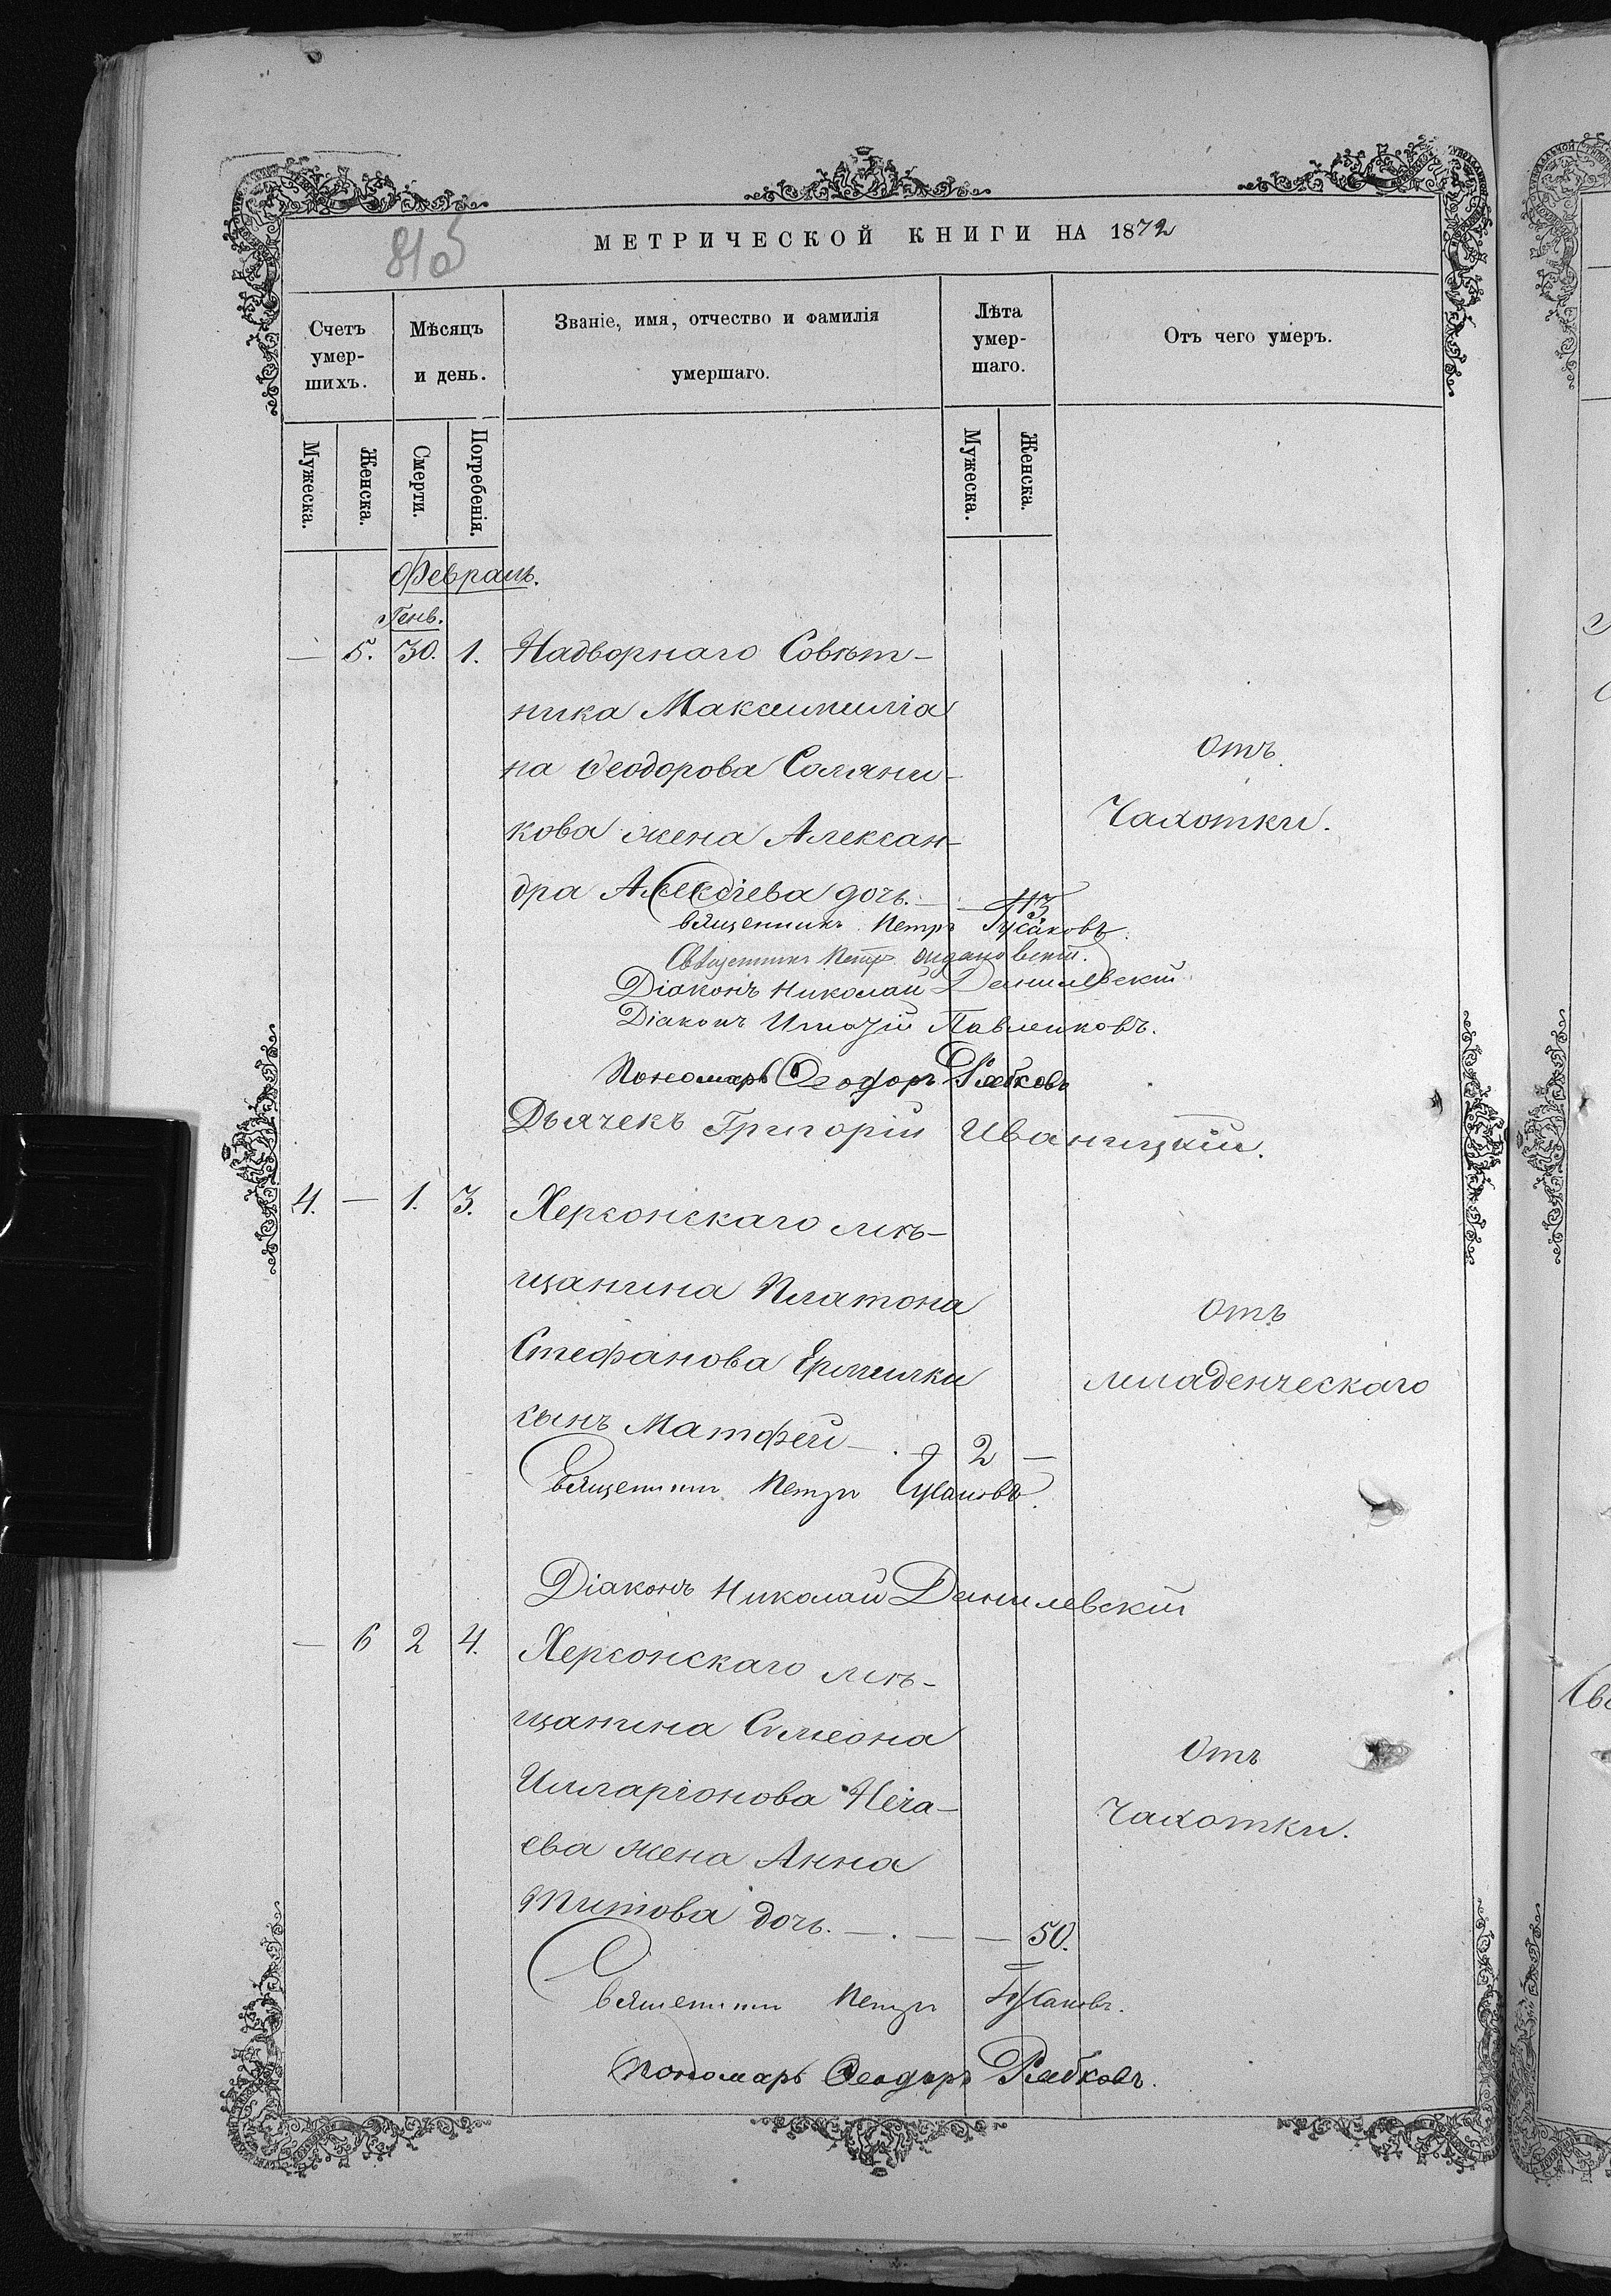 МЕТРИЧЕСКОЙ КНИГИ НА 1872
Счетъ умер-шихъ.
Мѣсяцъ и день.
Званіе, имя, отчество и фамилія умершаго.
Лѣта умер-шаго.
Отъ чего умеръ.
Мужеска.
Женска.
Смерти.
Погребенія.
Мужеска.
Женска.
Февраль.
Генв.
— 5. 30. 1. Надворнаго Совѣт-
ника Максимиліа
на Ѳеодорова Соляни-
отъ
кова жена Алексан-
Чахотки.
дра Алексѣева дочь. — 43
Священникъ Петръ Гусаковъ.
Священникъ Петръ
Діаконъ Николай Данилевскій
Діаконъ Павленковъ.
Пономарь Ѳеодоръ Рябковъ
Дьячекъ Григорій Иваницкій.
4. — 1. 3. Херсонскаго мѣ-
щанина Платона
отъ
Стефанова Ермилки
младенческаго
сынъ Матфей — . — 2 —
Священникъ Петръ Гусаковъ.
Діаконъ Николай Данилевскій
— 6 2 4. Херсонскаго мѣ-
щанина Симеона
отъ
Илларіонова Неча-
Чахотки.
ева жена Анна
Титова дочь. — . — — 50.
Священникъ Петръ Гусаковъ.
Пономарь Ѳеодоръ Рябковъ.